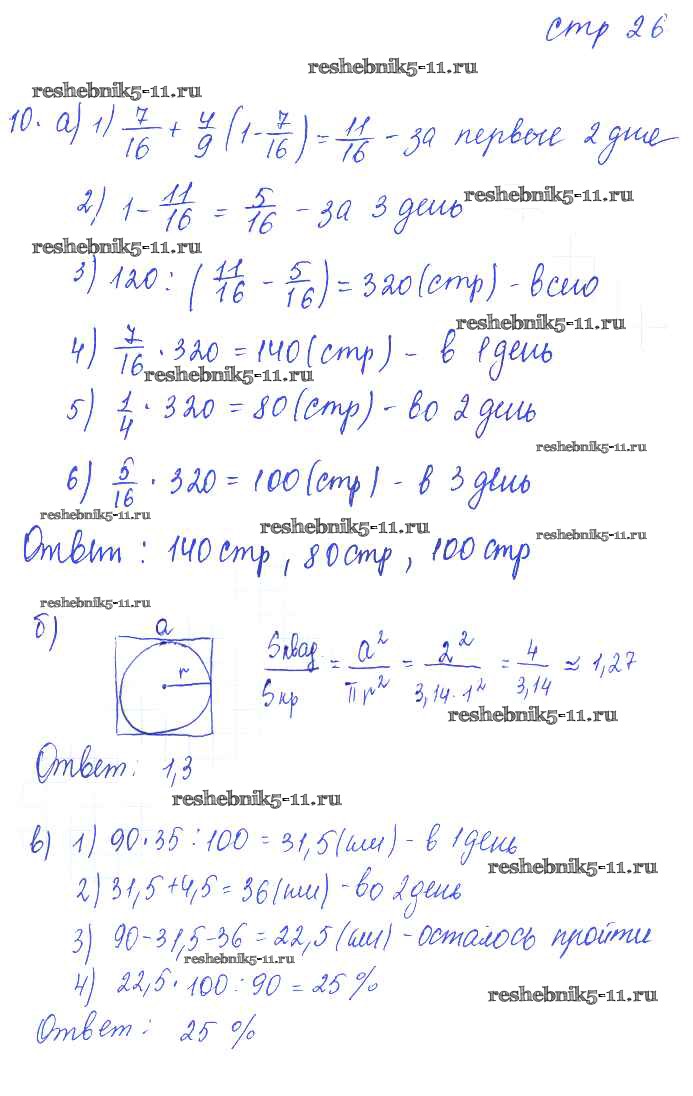 стр 26
reshebnik5-11.ru
reshebnik5-11.ru
10. а) 1) 7/16 + 4/9 (1 - 7/16) = 11/16 - за первые 2 дня
reshebnik5-11.ru
2) 1 - 11/16 = 5/16 - за 3 день
reshebnik5-11.ru
3) 120 : (11/16 - 5/16) = 320 (стр) - всего
reshebnik5-11.ru
4) 7/16 · 320 = 140 (стр) - в 1 день
reshebnik5-11.ru
5) 1/4 · 320 = 80 (стр) - во 2 день
reshebnik5-11.ru
6) 5/16 · 320 = 100 (стр) - в 3 день
reshebnik5-11.ru
reshebnik5-11.ru
reshebnik5-11.ru
Ответ: 140 стр, 80 стр, 100 стр
reshebnik5-11.ru
б) a r Sквад/Sкр = a²/πr² = 2²/3,14·1² = 4/3,14 ≈ 1,27
reshebnik5-11.ru
Ответ: 1,3
reshebnik5-11.ru
в) 1) 90·35:100 = 31,5 (км) - в 1 день
reshebnik5-11.ru
2) 31,5+4,5 = 36 (км) - во 2 день
3) 90-31,5-36 = 22,5 (км) - осталось пройти
reshebnik5-11.ru
4) 22,5·100:90 = 25 %
reshebnik5-11.ru
Ответ: 25 %